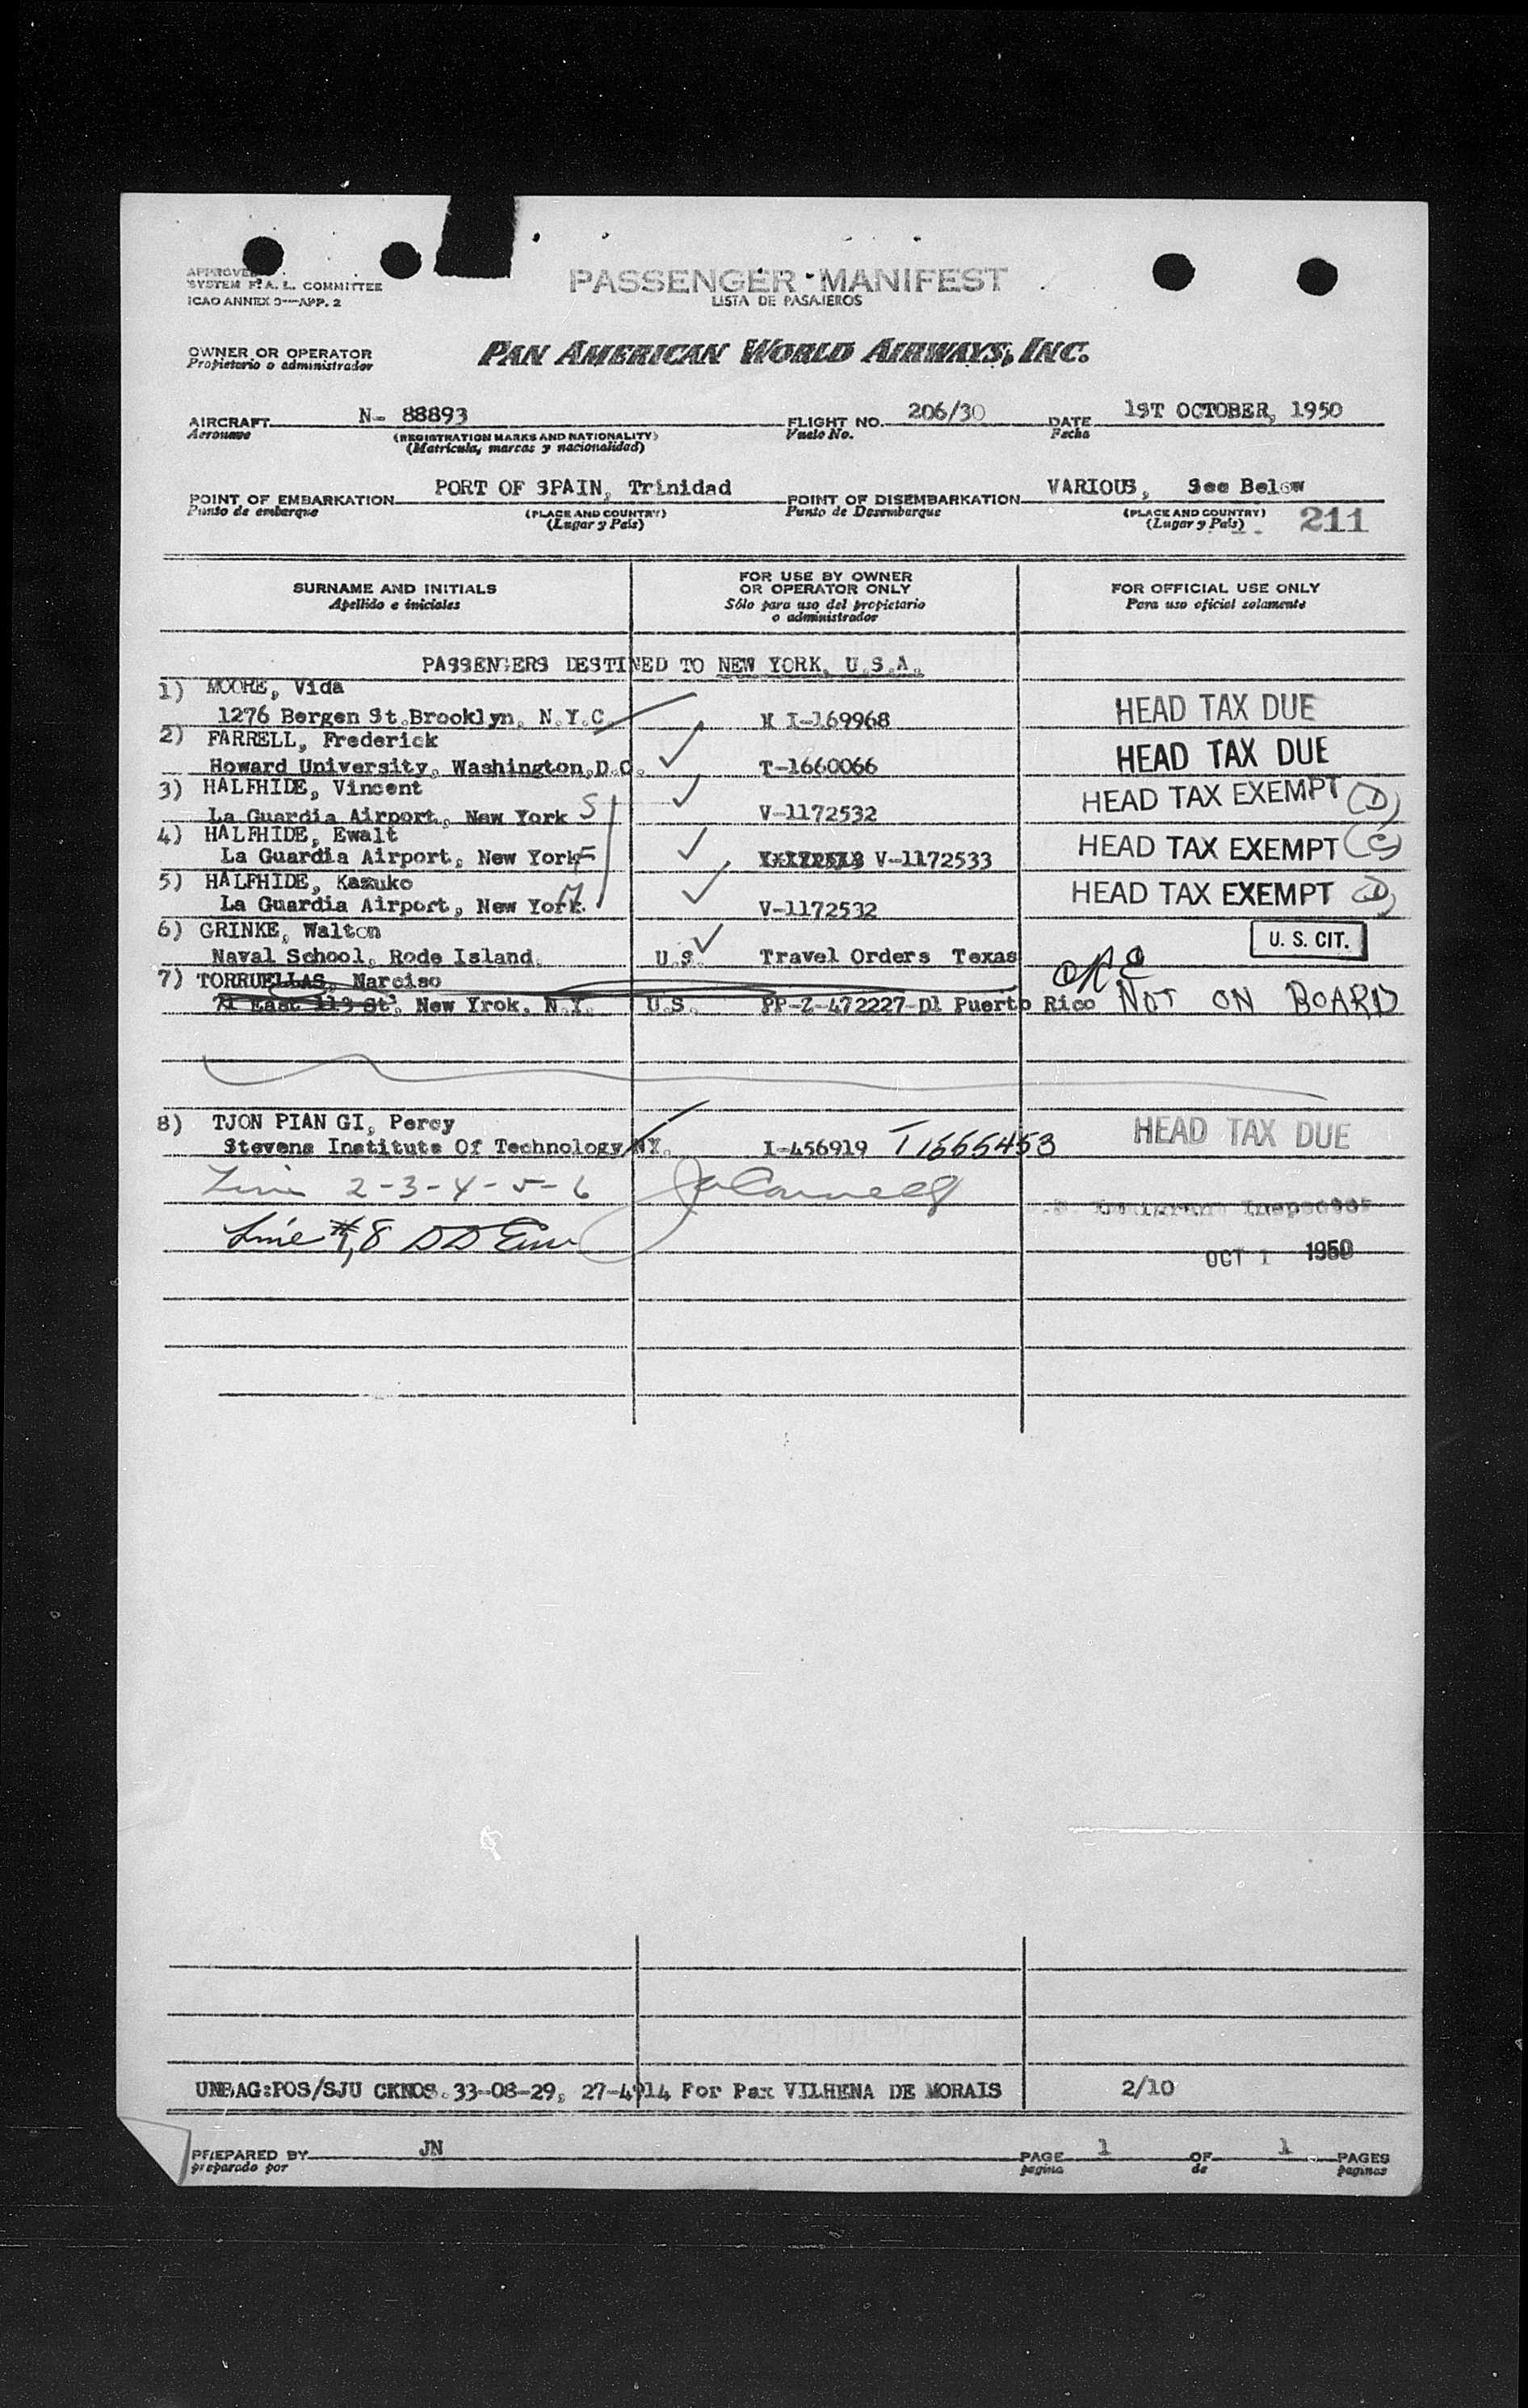 APPROVED
SYSTEM F. A. L. COMMITTEE
ICAO ANNEX 9—APP. 2
PASSENGER MANIFEST
LISTA DE PASAJEROS
OWNER OR OPERATOR
Propietario o administrador
PAN AMERICAN WORLD AIRWAYS, INC.
AIRCRAFT N- 88893 FLIGHT NO. 206/30 DATE 1ST OCTOBER, 1950
Aeronave (REGISTRATION MARKS AND NATIONALITY) Vuelo No. Fecha
(Matricula, marcas y nacionalidad)
POINT OF EMBARKATION PORT OF SPAIN, Trinidad POINT OF DISEMBARKATION VARIOUS, See Below
Punto de embarque (PLACE AND COUNTRY) Punto de Desembarque (PLACE AND COUNTRY)
(Lugar y País) (Lugar y País) 211
SURNAME AND INITIALS FOR USE BY OWNER OR OPERATOR ONLY FOR OFFICIAL USE ONLY
Apellido e iniciales Sólo para uso del propietario o administrador Para uso oficial solamente
PASSENGERS DESTINED TO NEW YORK, U.S.A.
1) MOORE, Vida
1276 Bergen St.Brooklyn, N.Y.C. I-169968 HEAD TAX DUE
2) FARRELL, Frederick
Howard University, Washington,D.C. T-1660066 HEAD TAX DUE
3) HALFHIDE, Vincent
La Guardia Airport, New York S V-1172532 HEAD TAX EXEMPT (D)
4) HALFHIDE, Ewalt
La Guardia Airport, New York F V-1172533 HEAD TAX EXEMPT (C)
5) HALFHIDE, Kazuko
La Guardia Airport, New York M V-1172532 HEAD TAX EXEMPT (D)
6) GRINKE, Walton U. S. CIT.
Naval School, Rode Island. U.S. Travel Orders Texas
7) TORRUELLAS, Narciso
71 East 113 St, New Yrok, N.Y. U.S. PP-Z-472227-D1 Puerto Rico NOT ON BOARD
8) TJON PIAN GI, Percy
Stevens Institute Of Technology NY. I-456919 T1665453 HEAD TAX DUE
Line 2-3-4-5-6
U.S. Immigrant Inspector
Line #1,8
OCT 1 1950
UNBAG:POS/SJU CKNOS. 33-08-29, 27-4914 For Pax VILHENA DE MORAIS 2/10
PREPARED BY JN PAGE 1 OF 1 PAGES
preparado por pagina de paginas